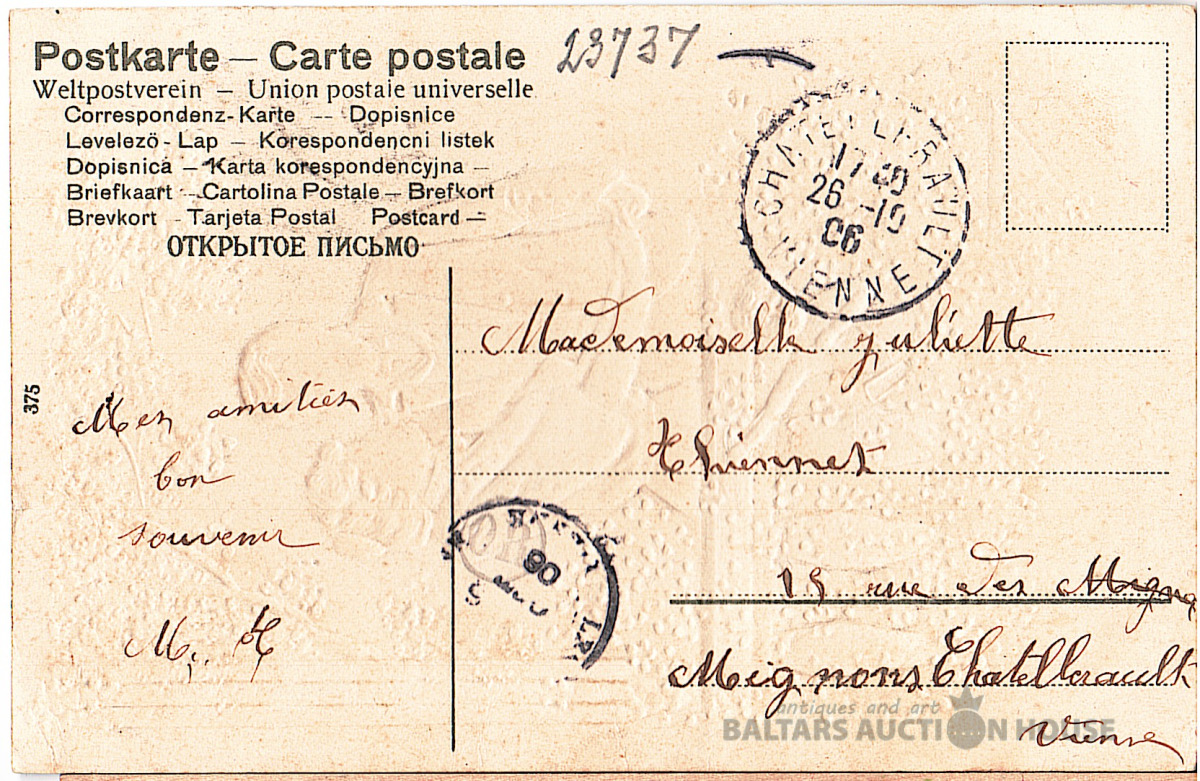 Postkarte — Carte postale
23737
Weltpostverein — Union postale universelle
Correspondenz-Karte — Dopisnice
Levelezö-Lap — Korespondencni listek
Dopisnica — Karta korespondencyjna —
Briefkaart — Cartolina Postale — Brefkort
Brevkort - Tarjeta Postal Postcard —
ОТКРЫТОЕ ПИСЬМО
CHATELLERAULT
17 20
26 -10
06
VIENNE
Mademoiselle Juliette
375
Mes amitiés
bon
souvenir
M. H
06
15 rue des Migno
Mignons Chatellerault
Vienne
antiques and art
BALTARS AUCTION HOUSE